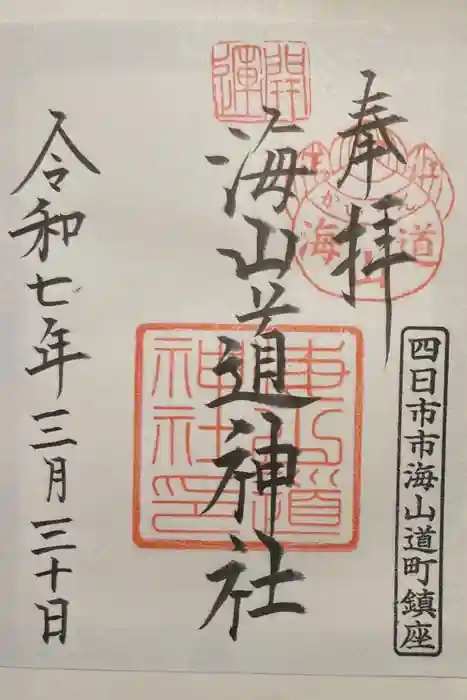 奉拝
海山道
四日市市海山道町鎮座
開運
海山道神社
令和七年三月三十日